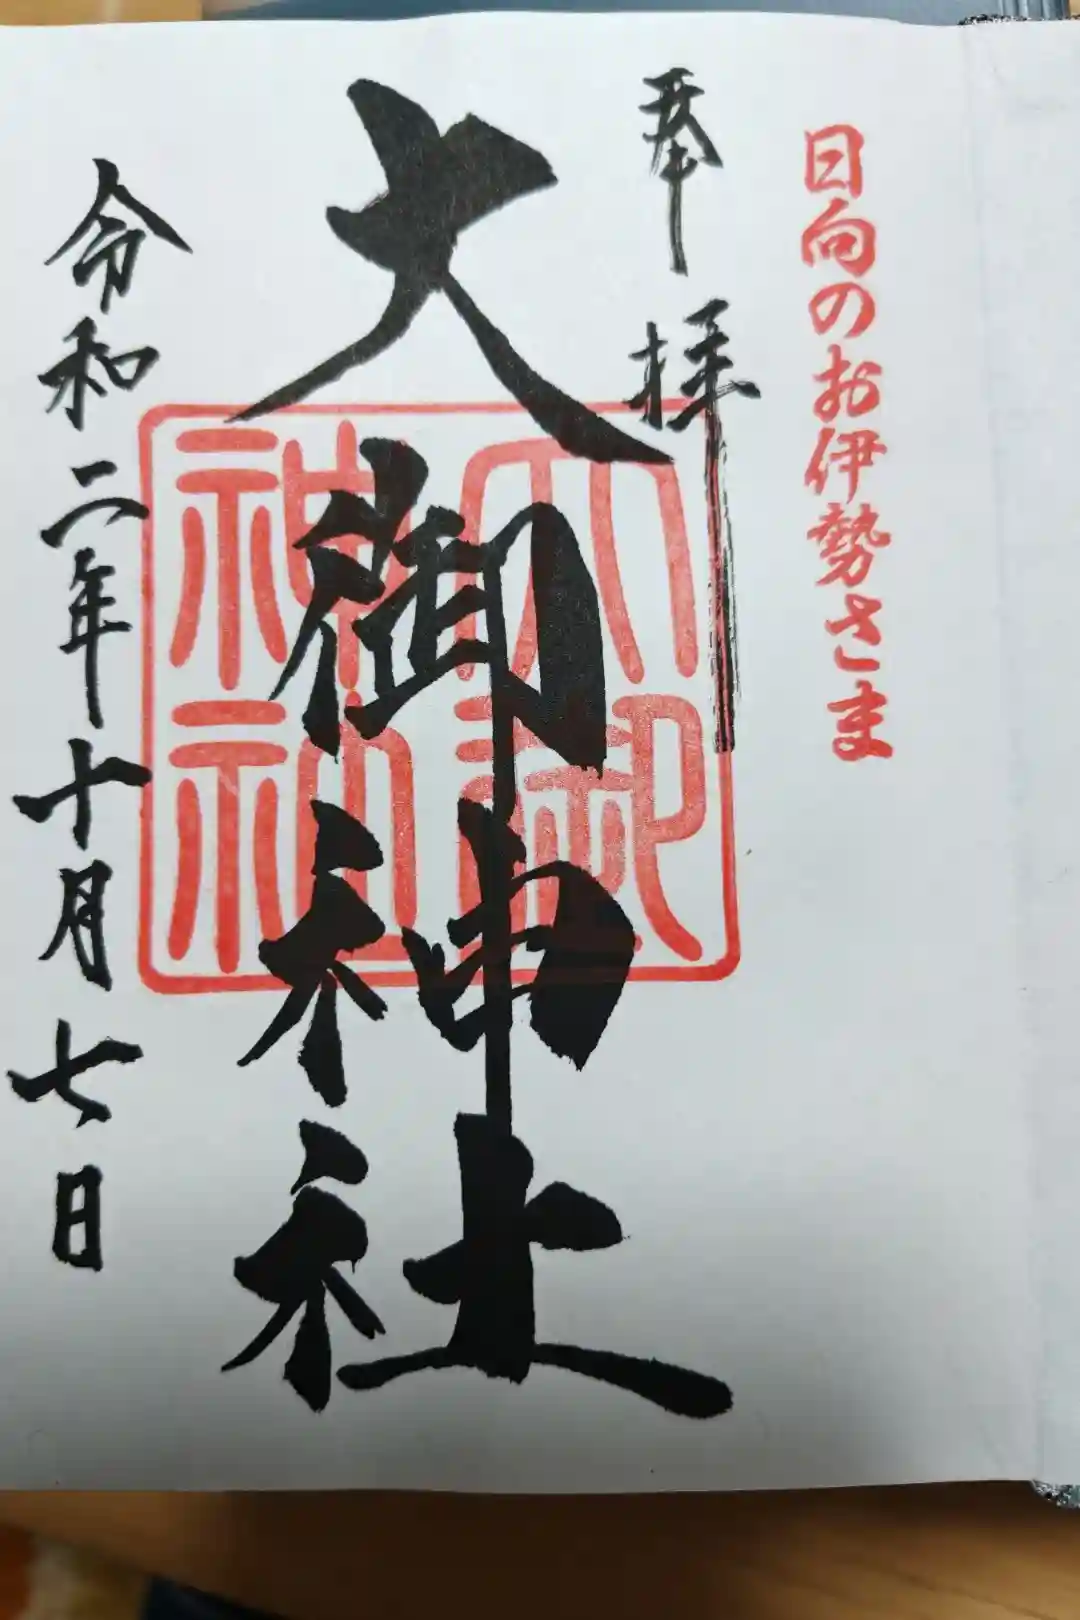 日向のお伊勢さま
奉拝
大御神社
大御
神社
令和二年十月七日